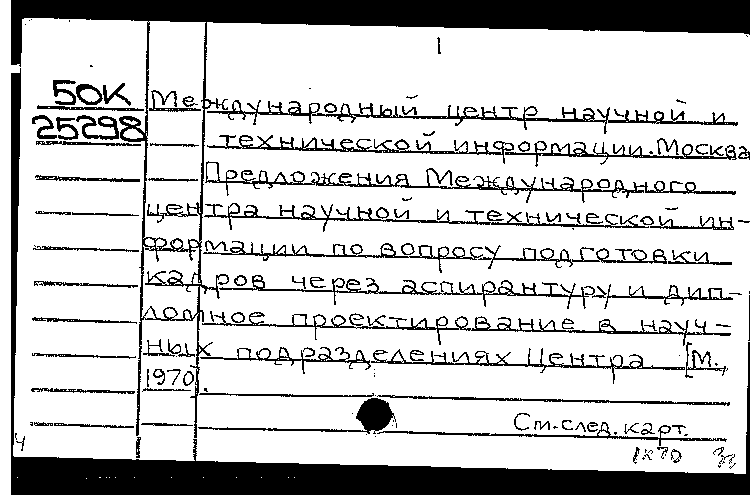 1
50К Международный центр научной и
25298 технической информации. Москва
Предложения Международного
центра научной и технической ин-
формации по вопросу подготовки
кадров через аспирантуру и дип-
ломное проектирование в науч-
ных подразделениях Центра [М.,
1970].
См. след. карт.
4